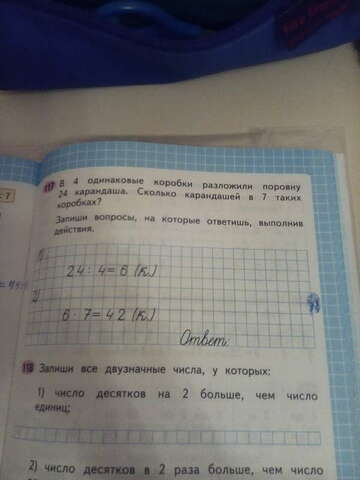 117 В 4 одинаковые коробки разложили поровну
24 карандаша. Сколько карандашей в 7 таких
коробках?
Запиши вопросы, на которые ответишь, выполнив
действия.
1)
24 : 4 = 6 (к.)
2)
6 · 7 = 42 (к.)
Ответ:
118 Запиши все двузначные числа, у которых:
1) число десятков на 2 больше, чем число
единиц;
2) число десятков в 2 раза больше, чем число